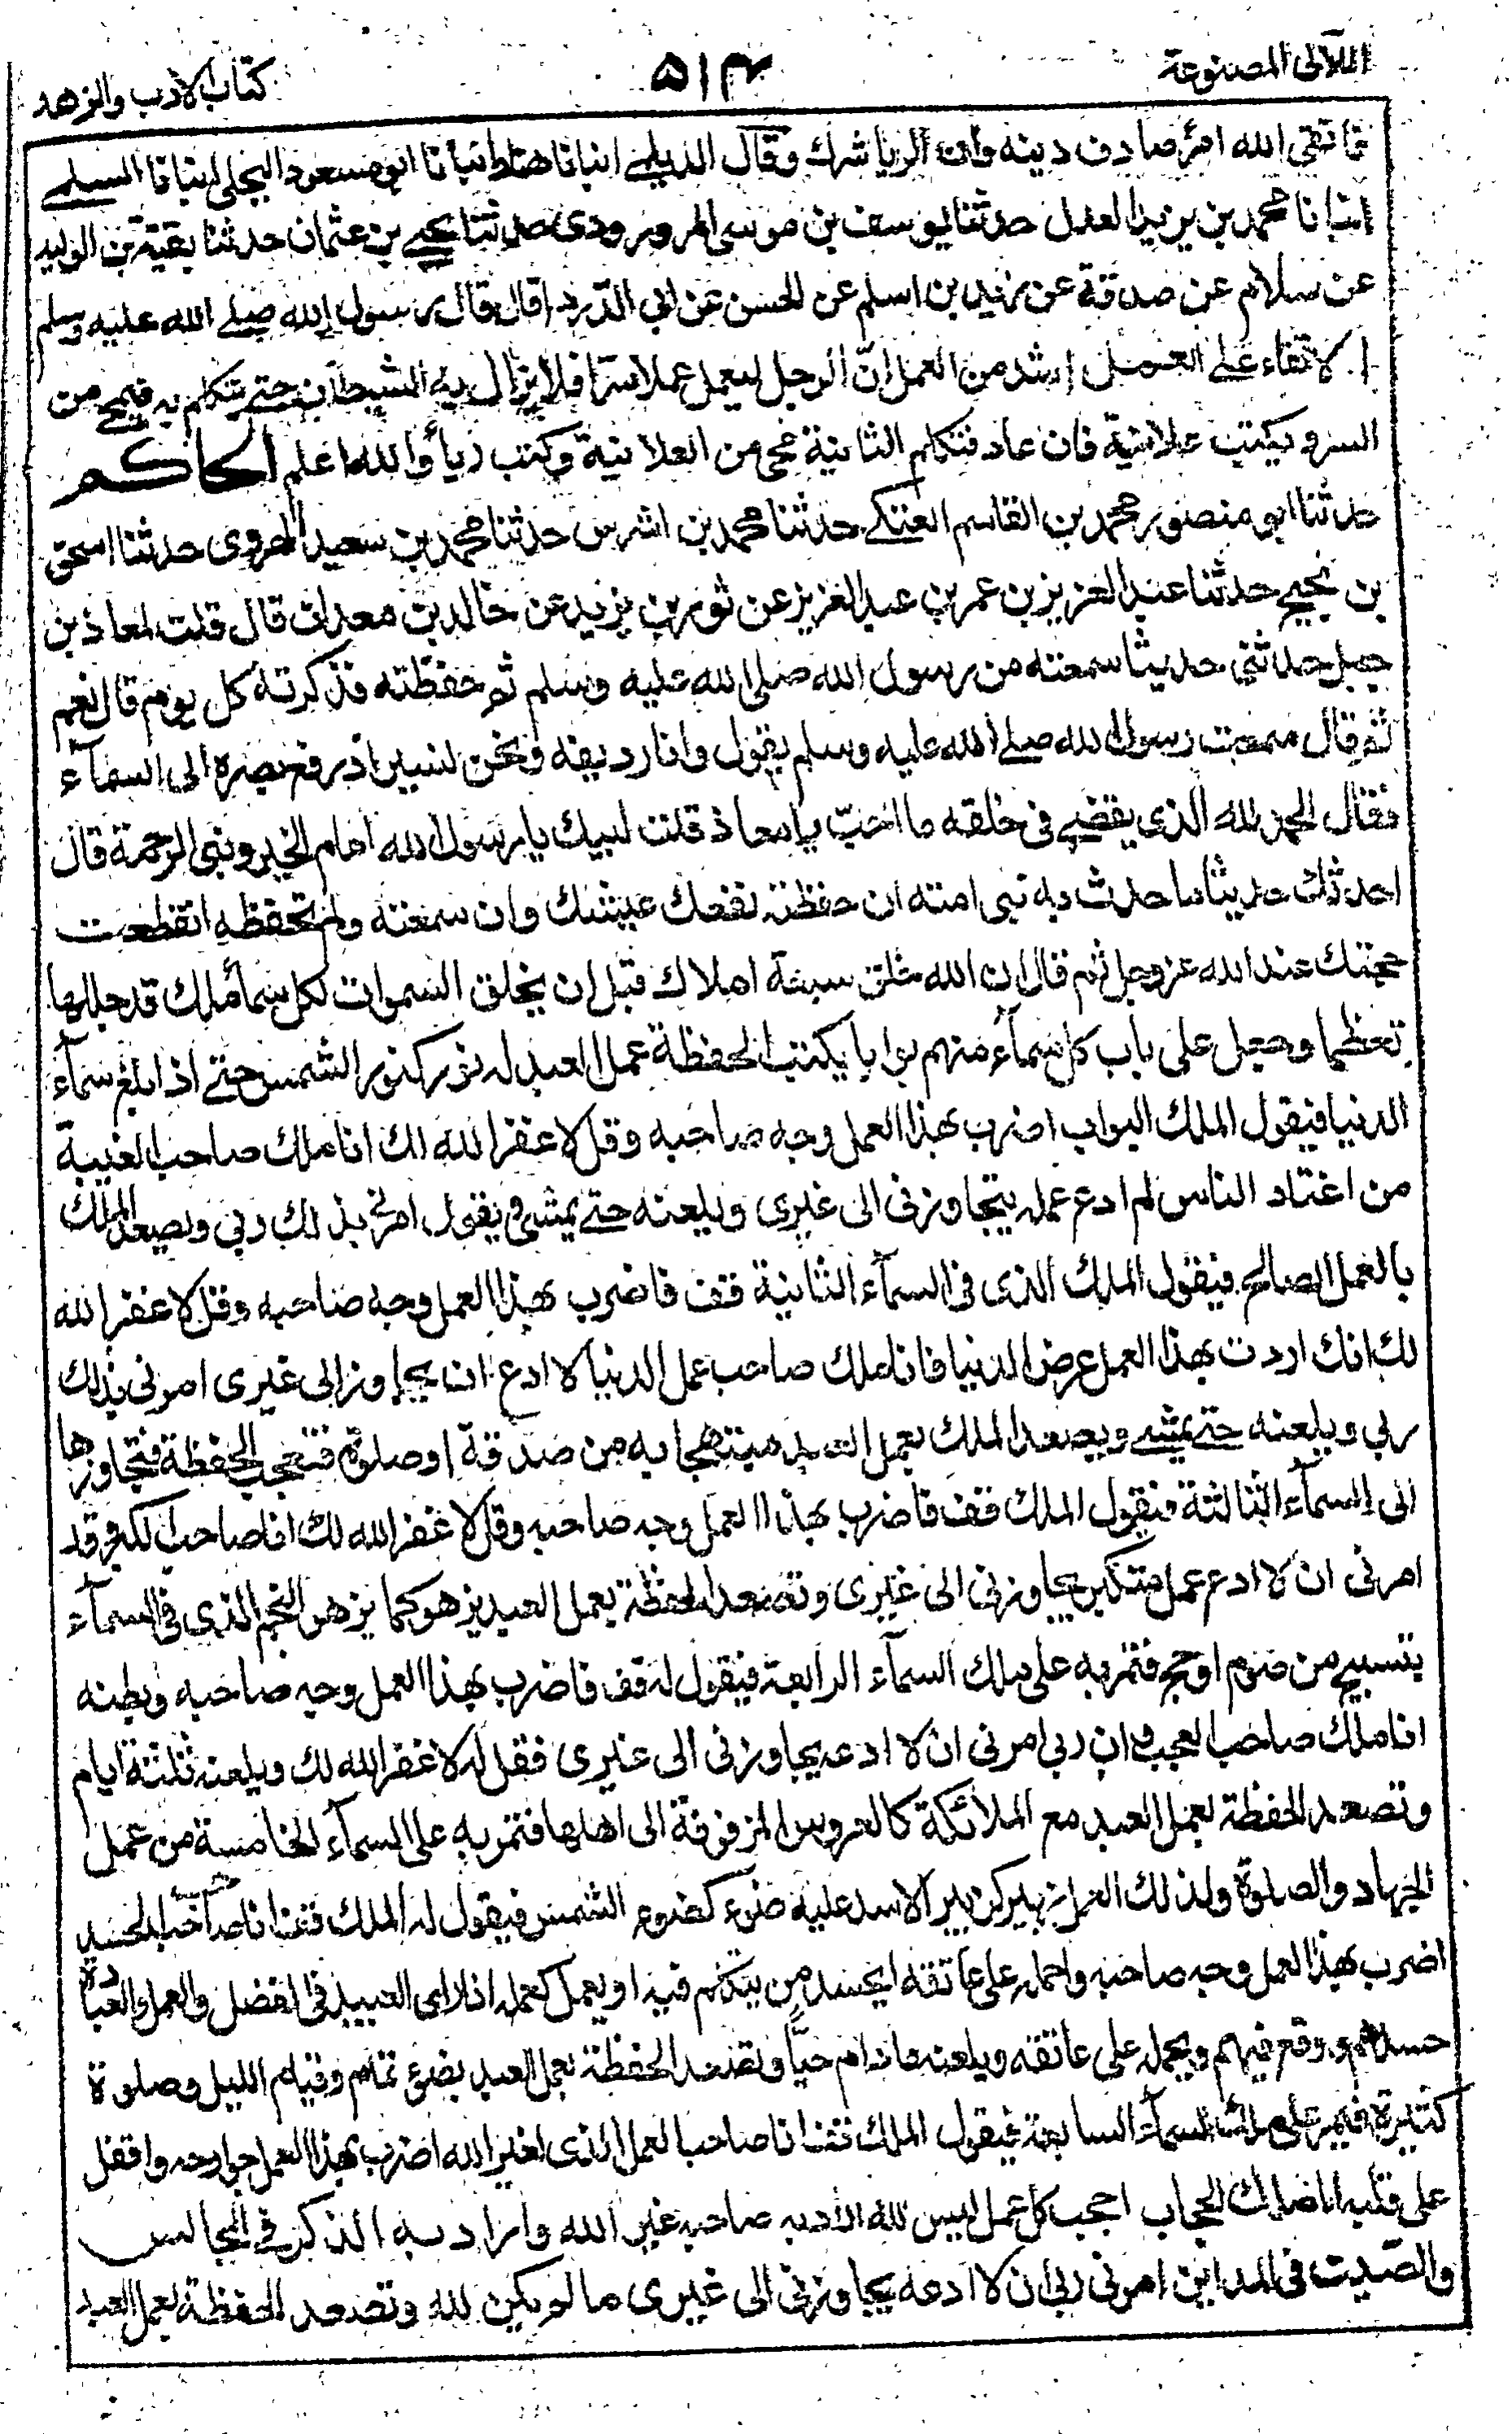 اللآلى المصنوعة
۵۱۴
كتاب الادب والزهد
فاتقى الله امرؤ صادف دينه وان الريا شرك وقال الديلمى انبانا هناد انبانا ابو مسعود البجلى انبانا السلمى
انبانا محمد بن يزيد العدل حدثنا يوسف بن موسى المروروذى حدثنا يحيى بن عثمان حدثنا بقية بن الوليد
عن سلام عن صدقة عن زيد بن اسلم عن الحسن عن ابى الدرداء قال قال رسول الله صلى الله عليه وسلم
الاتقاء على العمل اشد من العمل إنّ الرجل ليعمل عملا سرّا فلا يزال به الشيطان حتى يتكلم به فيمحى من
السر ويكتب علانية فان عاد فتكلم الثانية محى من العلانية وكتب رياً والله اعلم الحاكم
حدثنا ابو منصور محمد بن القاسم العتكى حدثنا محمد بن اشرس حدثنا محمد بن سعيد الهروى حدثنا اسحق
بن نجيح حدثنا عبد العزيز بن عمر بن عبد العزيز عن ثور بن يزيد عن خالد بن معدان قال قلت لمعاذ بن
جبل حدثنى حديثا سمعته من رسول الله صلى الله عليه وسلم ثم حفظته فذكرته كل يوم قال نعم
ثم قال سمعت رسول الله صلى الله عليه وسلم يقول وانا رديفه ونحن نسير اذ رفع بصره الى السمآء
فقال الحمد لله الذى يقضى فى خلقه ما احبّ يا معاذ قلت لبيك يا رسول الله امام الخير ونبى الرحمة قال
احدثك حديثا ما حدث به نبى امته ان حفظته نفعك عيشك وان سمعته ولم تحفظه انقطعت
حجتك عند الله عز وجل ثم قال ان الله خلق سبعة املاك قبل ان يخلق السموات لكل سمآ ملك قد جللها
تعظيما وجعل على باب كل سمآء منهم بوابا يكتب الحفظة عمل العبد له نور كنور الشمس حتى اذا بلغ سمآء
الدنيا فيقول الملك البواب اضرب بهذا العمل وجه صاحبه وقل لا غفر الله لك انا ملك صاحب الغيبة
من اغتاب الناس لم ادع عمله يتجاوزنى الى غيرى ويلعنه حتى يمشى ويقول امرنى بذلك ربى ويصعد الملك
بالعمل الصالح فيقول الملك الذى فى السمآء الثانية قف فاضرب بهذا العمل وجه صاحبه وقل لا غفر الله
لك انك اردت بهذا العمل عرض الدنيا فانا ملك صاحب عمل الدنيا لا ادع ان يجاوز الى غيرى امرنى بذلك
ربى ويلعنه حتى يمشى ويصعد الملك بعمل العبد مبتهجا به من صدقة او صلوة فتعجب الحفظة فتجاوزها
الى السمآء الثالثة فيقول الملك قف فاضرب بهذا العمل وجه صاحبه وقل لا غفر الله لك انا صاحب الكبر وقد
امرنى ان لا ادع عمل متكبر يجاوزنى الى غيرى وتصعد الحفظة بعمل العبد يزهو كما يزهر النجم الذى فى السمآء
بتسبيح من صوم او حج فتمر به على ملك السمآء الرابعة فيقول له قف فاضرب بهذا العمل وجه صاحبه وبطنه
انا ملك صاحب العجب ان ربى امرنى ان لا ادعه يجاوزنى الى غيرى فقل له لا غفر الله لك ويلعنه ثلثة ايام
وتصعد الحفظة بعمل العبد مع الملائكة كالعروس المزفوفة الى اهلها فتمر به على السمآء الخامسة من عمل
الجهاد والصلوة ولذلك العمل زئير كزئير الاسد عليه ضوء كضوء الشمس فيقول له الملك قف انا صاحب الحسد
اضرب بهذا العمل وجه صاحبه واحمله على عاتقه يحسد من فيه او يعمل كعمله اذا راى العبيد فى الفضل والعمل والعبادة
حسدهم ووقع فيهم ويحمله على عاتقه ويلعنه مادام حيّا وتصعد الحفظة بعمل العبد بضوء تمام وقيام الليل وصلوة
كثيرة فيمر على ملك السمآء السابعة فيقول الملك قف انا صاحب العمل الذى لغير الله اضرب بهذا العمل جوارحه واقفل
على قلبه انا ملك الحجاب احجب كل عمل ليس لله اراد به صاحبه غير الله واراد به الذكر فى المجالس
والصّيت فى المداين امرنى ربى ان لا ادعه يجاوزنى الى غيرى ما لم يكن لله وتصعد الحفظة بعمل العبد